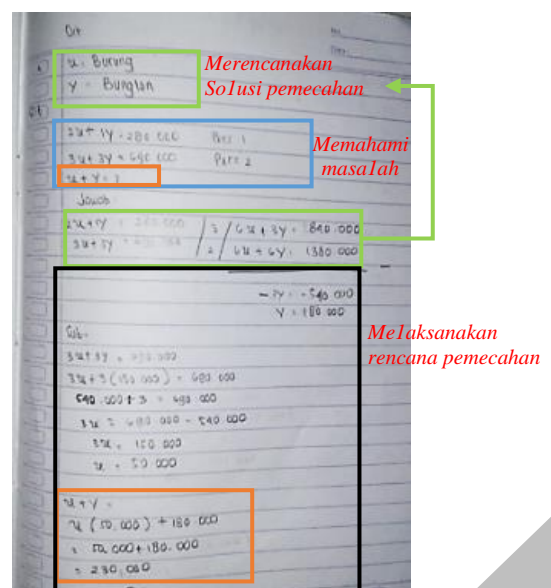 Dit
x = Burung
Merencanakan
Solusi pemecahan
y = Bunglon
2x + 1y = 280.000 Pers 1
Memahami
masalah
3x + 3y = 690.000 Pers 2
x + y = ?
Jawab
2x + 1y = 280.000 | 3 | 6x + 3y = 840.000
3x + 3y = | 2 | 6x + 6y = 1380.000
-3y = -540.000
y = 180.000
Melaksanakan
rencana pemecahan
Sub.
3x + 3y = 690.000
3x + 3(180.000) = 690.000
540.000 + 3 = 690.000
3x = 690.000 - 540.000
3x = 150.000
x = 50.000
x + y =
x (50.000) + 180.000
= 50.000 + 180.000
= 230.000